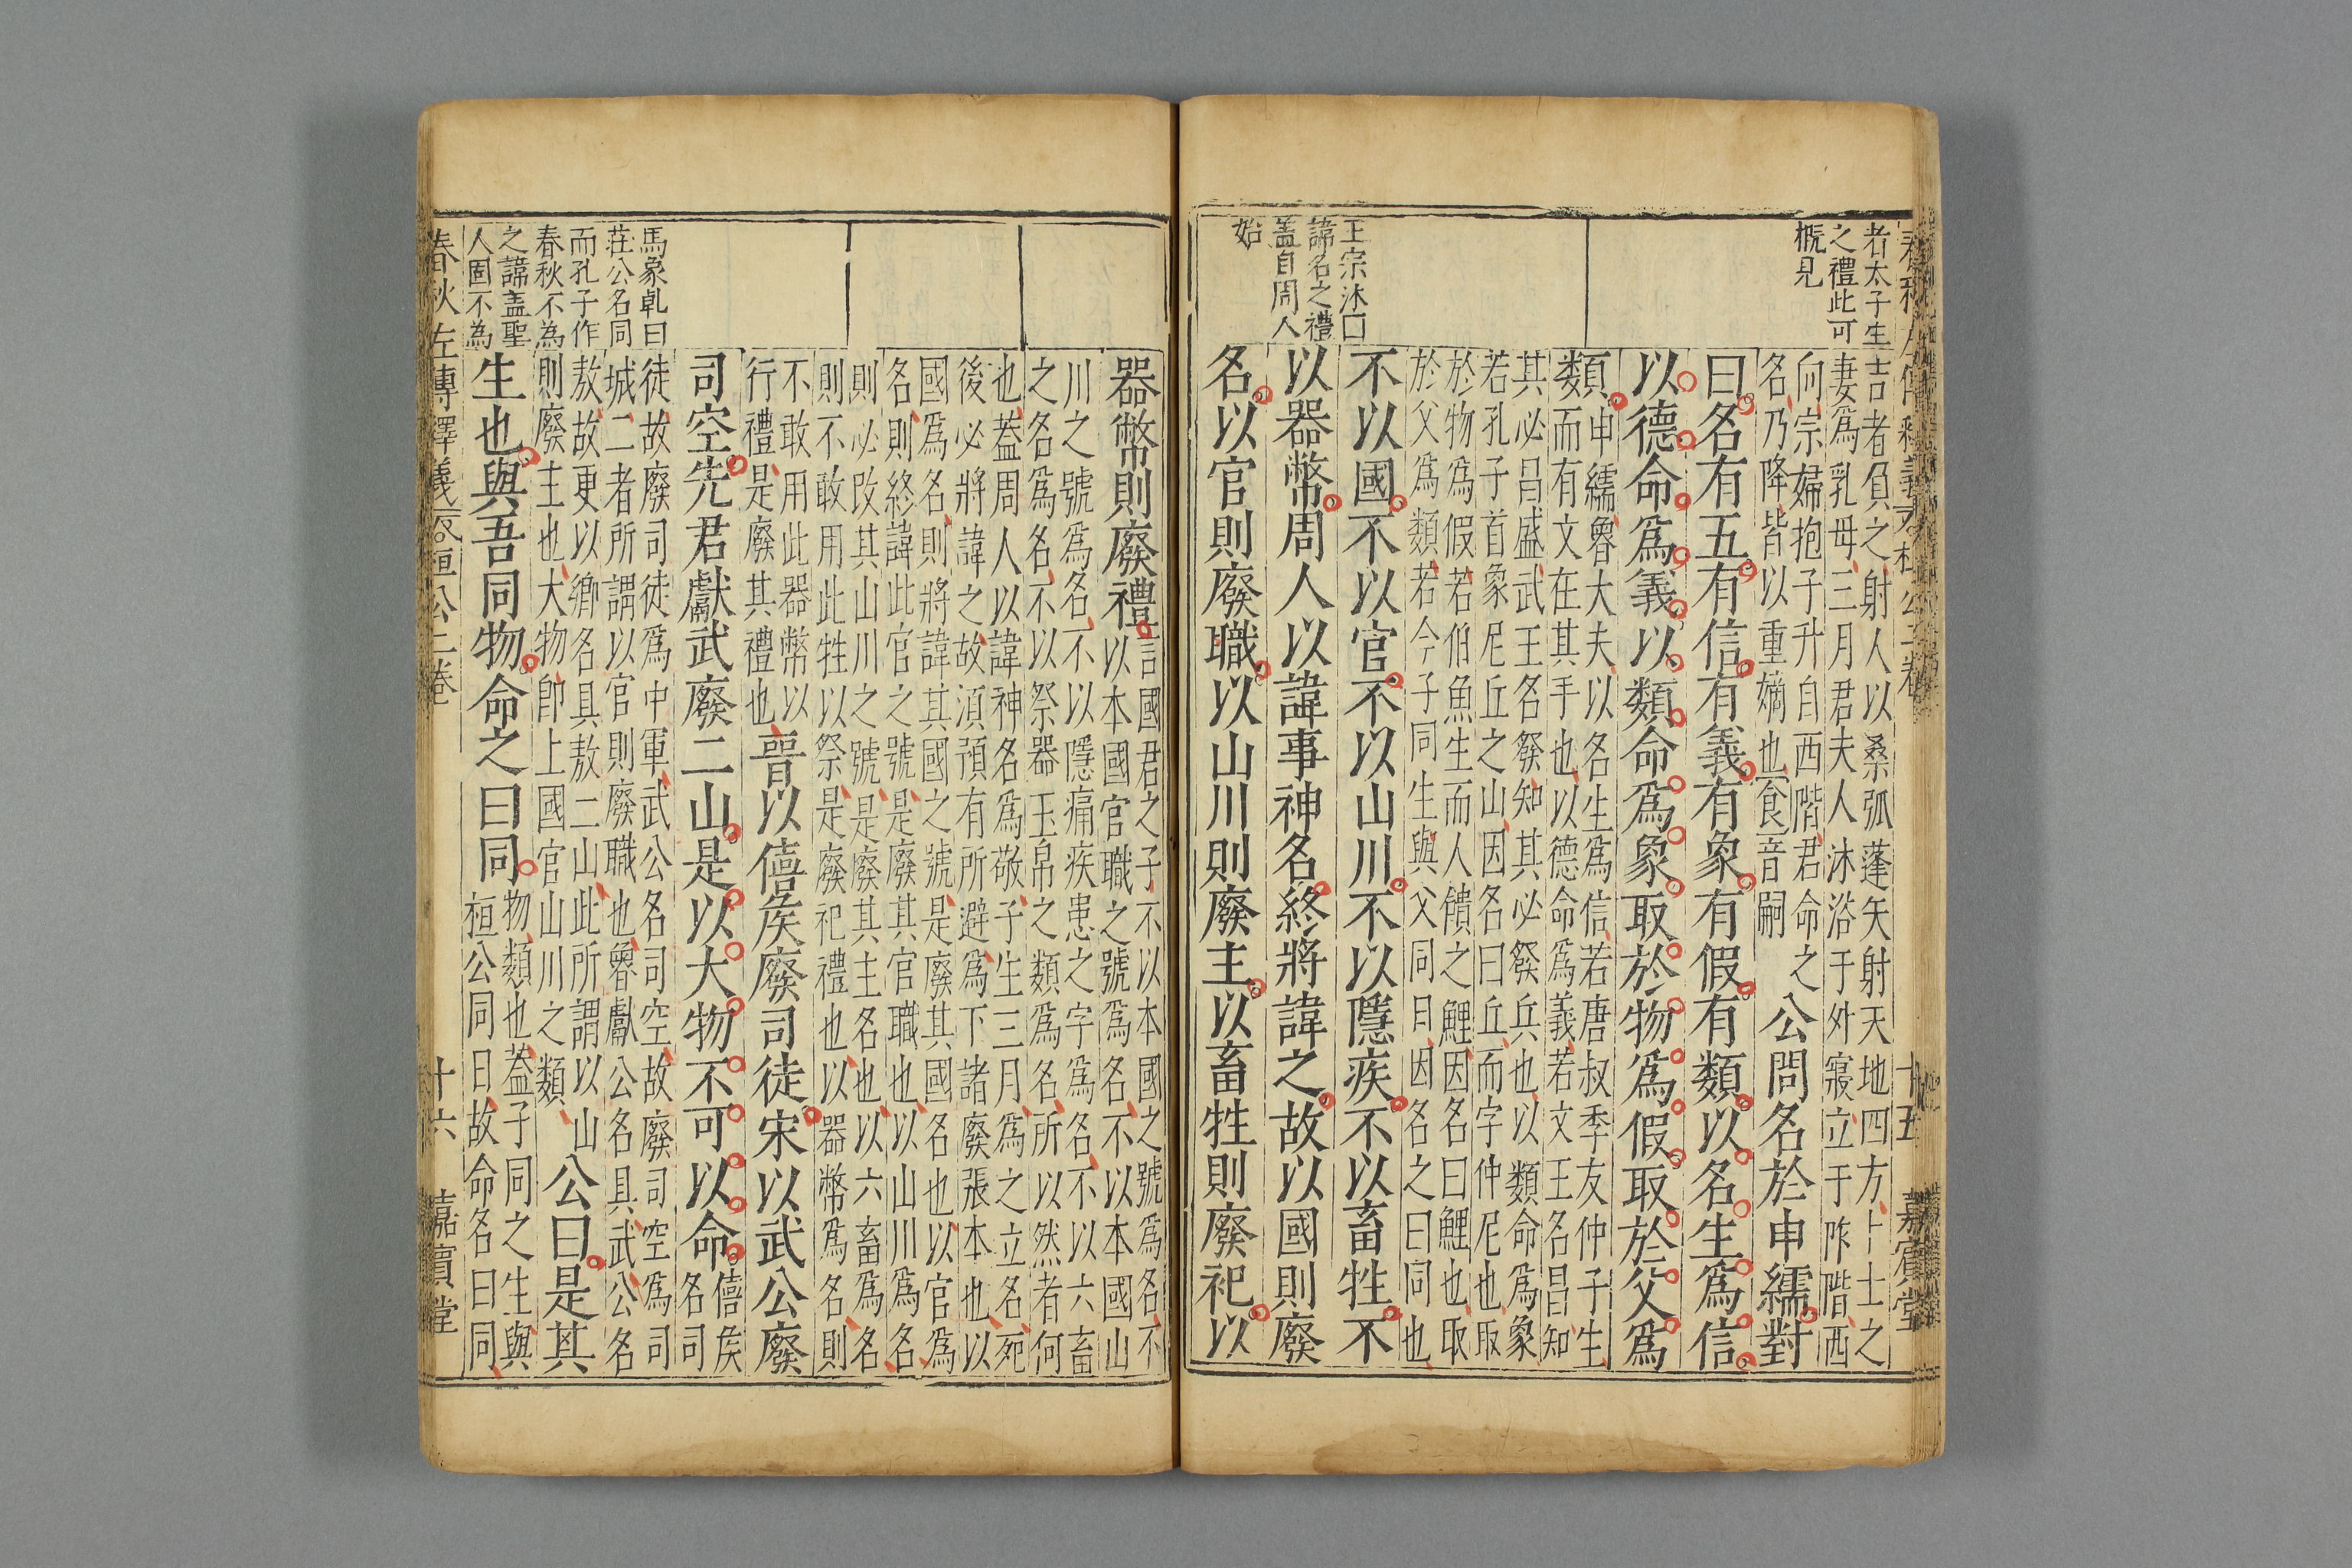 春秋左傳釋義評苑桓公二卷 十五 嘉賓堂
者太子生
之禮此可
概見
王宗沐曰
諱名之禮
盖自周人
始
士者負之射人以桑弧蓬矢射天地四方卜士之
妻爲乳母三月君夫人沐浴于外寢立于阼階西
向宗婦抱子升自西階君命之
名乃降皆以重嫡也食音嗣
公問名於申繻對
曰名有五有信有義有象有假有類以名生爲信
以德命爲義以類命爲象取於物爲假取於父爲
類
申繻魯大夫以名生爲信若唐叔季友仲子生
而有文在其手也以德命爲義若文王名昌知
其必昌盛武王名發知其必發兵也以類命爲象
若孔子首象尼丘之山因名曰丘而字仲尼也取
於物爲假若伯魚生而人饋之鯉因名曰鯉也取
於父爲類若今子同生與父同日因名之曰同也
不以國不以官不以山川不以隱疾不以畜牲不
以器幣周人以諱事神名終將諱之故以國則廢
名以官則廢職以山川則廢主以畜牲則廢祀以
馬象乹曰
莊公名同
而孔子作
春秋不為
之諱盖聖
人固不為
器幣則廢禮
言國君之子不以本國之號爲名不
以本國官職之號爲名不以本國山
川之號爲名不以隱痛疾患之字爲名不以六畜
之名爲名不以祭器玉帛之類爲名所以然者何
也葢周人以諱神名爲敬子生三月爲之立名死
後必將諱之故湏預有所避爲下諸廢張本也以
國爲名則將諱其國之號是廢其國名也以官爲
名則終諱此官之號是廢其官職也以山川爲名
則必改其山川之號是廢其主名也以六畜爲名
則不敢用此牲以祭是廢祀禮也以器幣爲名則
不敢用此器幣以
行禮是廢其禮也
晉以僖侯廢司徒宋以武公廢
司空先君獻武廢二山是以大物不可以命
僖侯
名司
徒故廢司徒爲中軍武公名司空故廢司空爲司
城二者所謂以官則廢職也魯獻公名具武公名
敖故更以鄉名具敖二山此所謂以山
則廢主也大物卽上國官山川之類
公曰是其
生也與吾同物命之曰同
物類也葢子同之生與
桓公同日故命名曰同
春秋左傳釋義評苑桓公二卷 十六 嘉賓堂